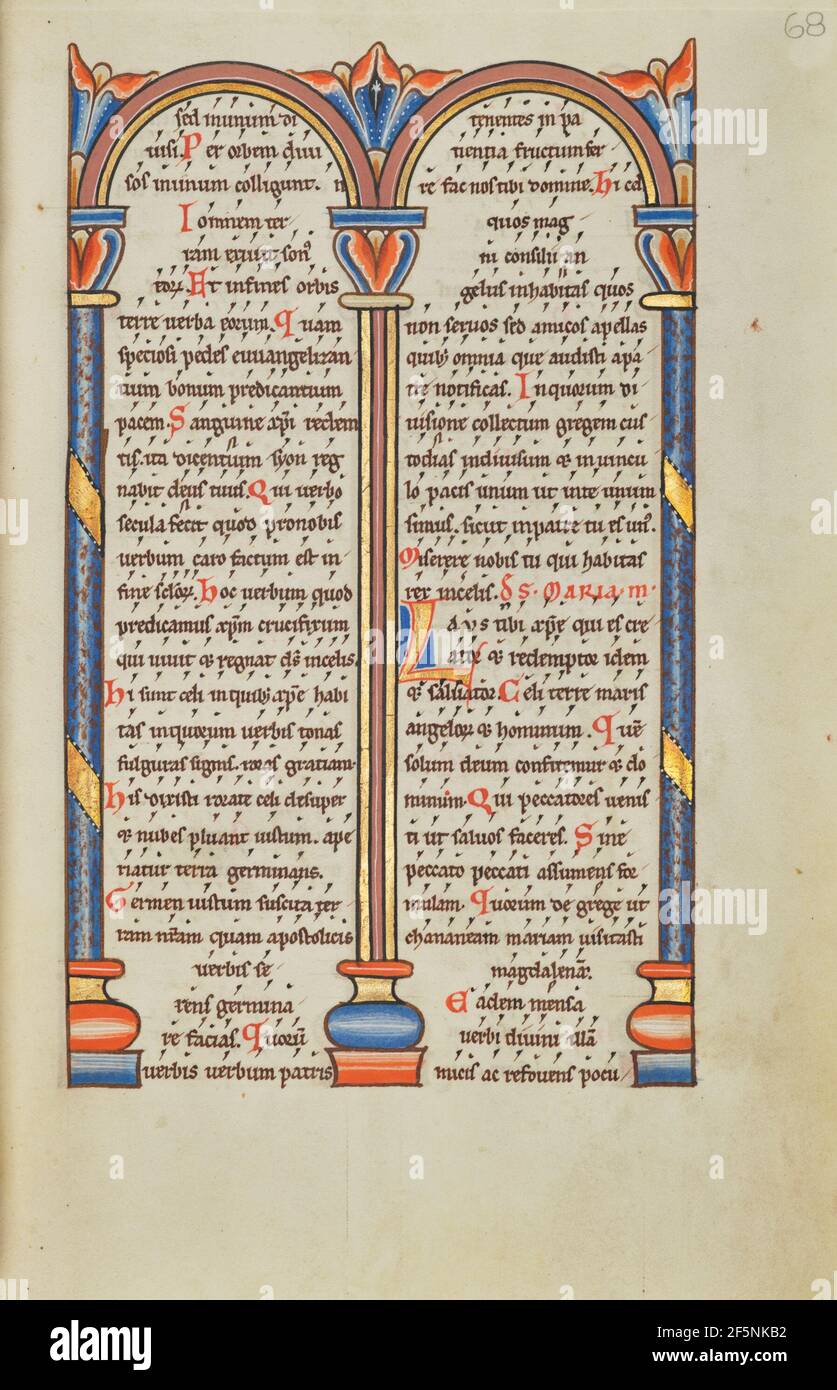 68
sed inunum di
uisi. Per orbem diui
sos inunum colligunt. n
I omnem ter
ram exiuit son⁹
eoꝝ. Et infines orbis
terre uerba eorum. Quam
speciosi pedes euuangelizan
tium bonum predicantium
pacem. Sanguine xp̄i redem
tis. ita dicentium syon reg
nabit deus tuus. Qui uerbo
secula fecit quod pronobis
uerbum caro factum est in
fine scl̄oꝝ. Hoc uerbum quod
predicamus xp̄m crucifixum
qui uiuit & regnat ds̄ incelis.
Hi sunt celi inquib; xp̄e habi
tas inquorum uerbis tonas
fulguras signis. roras gratiam.
His dixisti rorate celi desuper
& nubes pluant iustum. ape
riatur terra germinans.
Germen iustum suscita ter
ram nr̄am quam apostolicis
uerbis se
rens germina
re facias. Quorū
uerbis uerbum patris
tenentes in pa
tientia fructum fer
re fac nos tibi domine. Hi cd
quos mag
ni consilii an
gelus inhabitas quos
non seruos sed amicos apellas
quib; omnia que audisti apa
tre notificas. Inquorum di
uisione collectum gregem cus
todias indiuisum & in uincu
lo pacis unium ut inte unum
simus. sicut inpatre tu es un⁹.
Miserere nobis tu qui habitas
rex incelis. DS. MARIA. M.
Laus tibi xp̄e qui es cre
ator & redemptor idem
& saluator. Celi terre maris
angeloꝝ & hominum. Quē
solum deum confitemur & do
minum. Qui peccatores uenis
ti ut saluos faceres. Sine
peccato peccati assumens for
mulam. Quorum de grege ut
chananeam mariam uisitasti
magdalenā.
Eadem mensa
uerbi diuini illā
micis ac refouens pocu
alamy
Image ID: 2F5NKB2
www.alamy.com